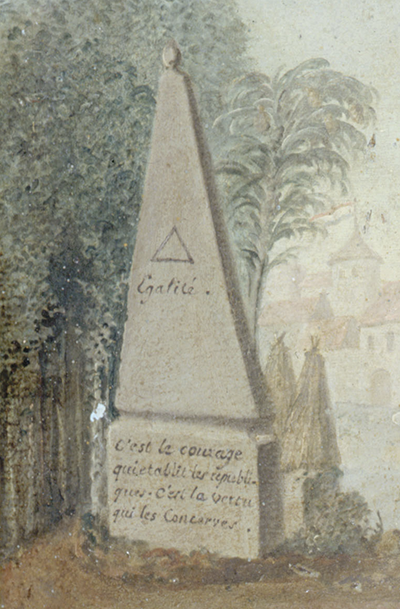 Egalité.
C'est le courage
qui etablit les républi-
ques. C'est la vertu
qui les Conserves.